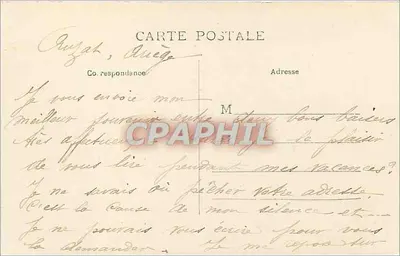 CARTE POSTALE
Auzat, Ariège
Correspondance
Adresse
Je vous envoie mon
M
meilleur souvenir entre deux bons baisers
très affectueux le plaisir
de vous lire pendant mes vacances?
Je ne savais où pêcher votre adresse.
C'est la cause de mon silence et
Je ne pouvais vous écrire pour vous
la demander. Je me repose sur
CPAPHIL